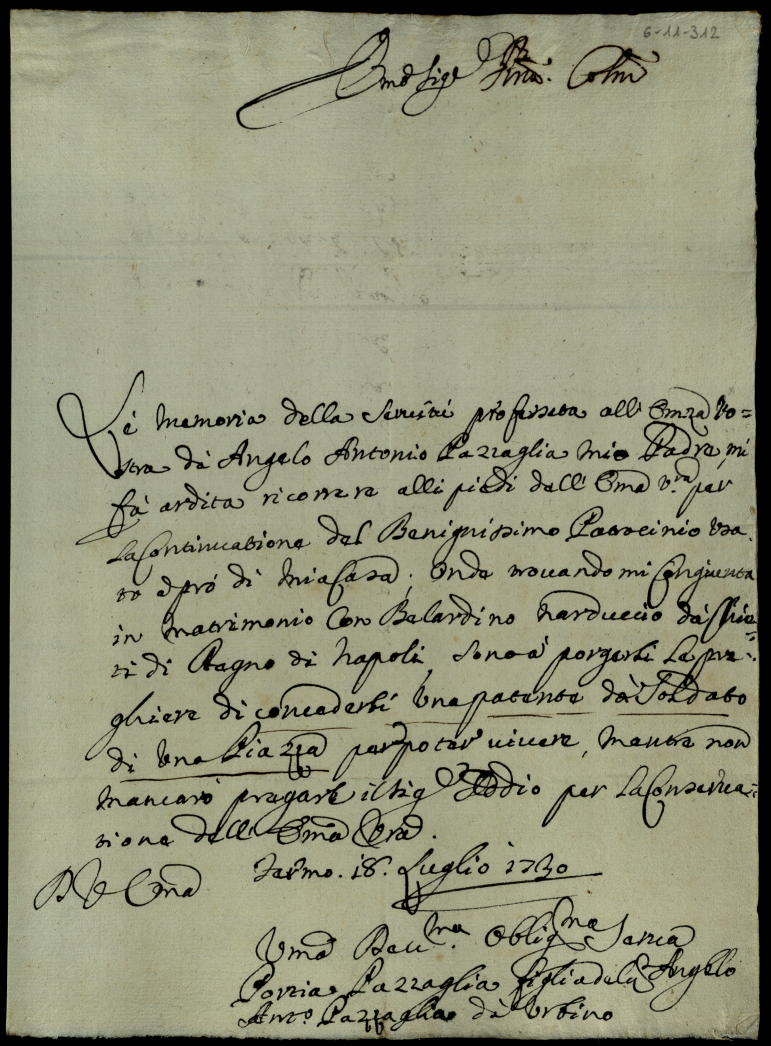 6-11-312
Em̃o Sig.e Pñe Colm̃o
La memoria della Servitù professata all' Em̃za Vo=
stra da Angelo Antonio Pazzaglia mio Padre, mi
fà ardita ricorrere alli piedi dell' Em̃a V.ra per
la Continuatione del Benignissimo Patrocinio usa
to à prò di mia Casa; onde trovandomi Congiunta
in matrimonio Con Belardino Narduccio da Chie=
ti di Regno di Napoli, sono à porgerli le pre=
ghiere di concederli una patente da Soldato
di una Piazza per poter vivere, mentre non
mancarò pregare il Sig.e Iddio per la Conserva=
tione dell' Em̃a Vrã.
D V Em̃a
Fermo. 18. Luglio 1730
Um̃a Dev.ma Oblig.ma Serva
Porzia Pazzaglia figlia del q̃ Angelo
Ant.o Pazzaglia da Urbino